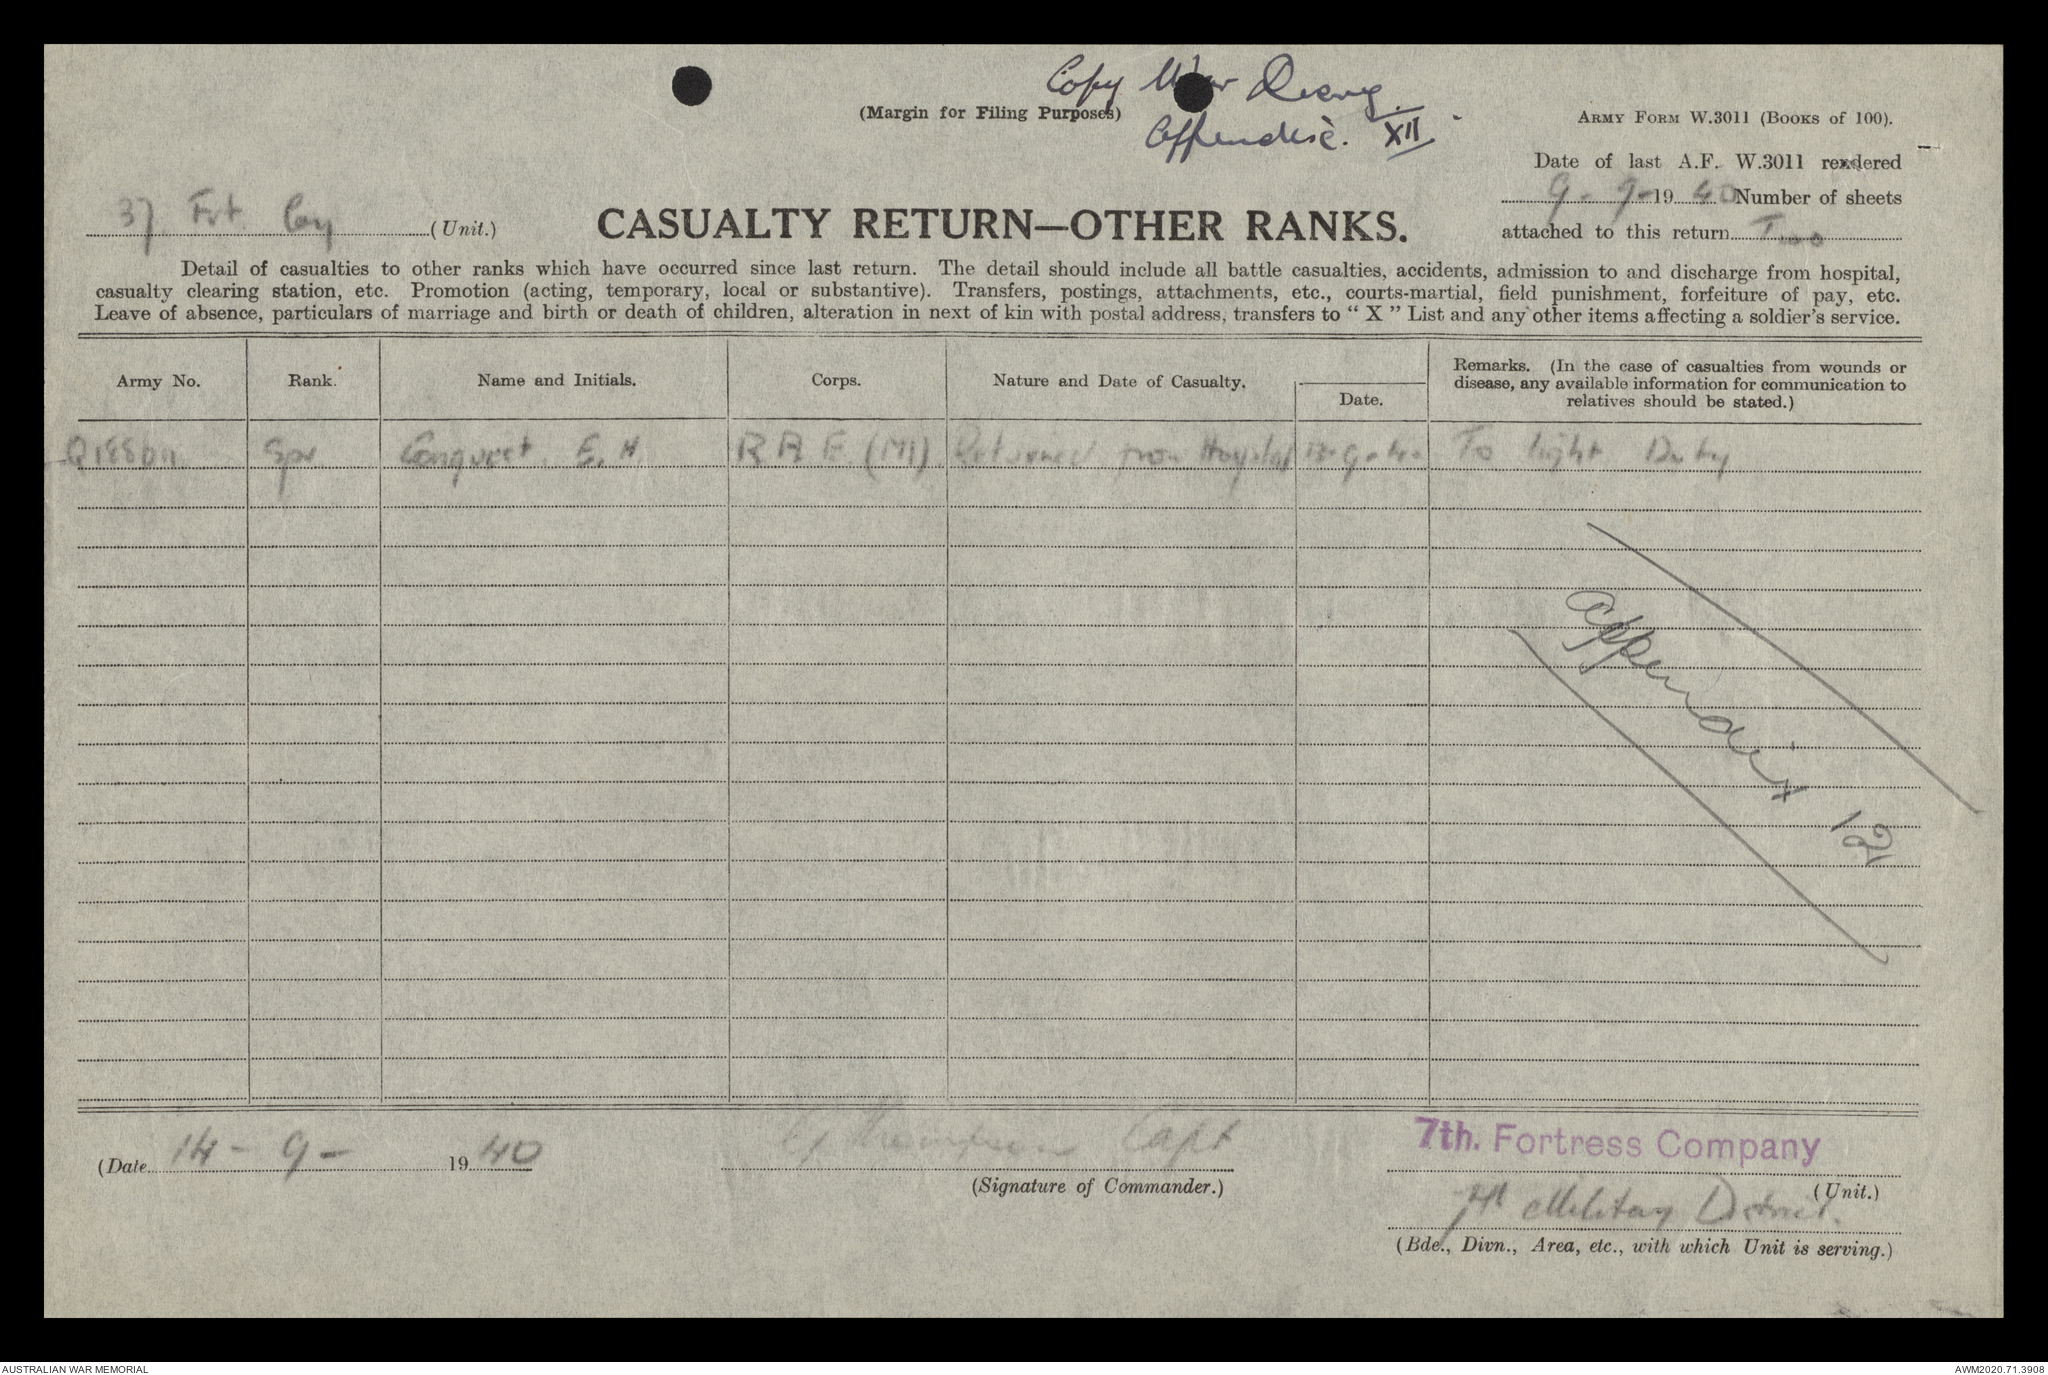 Copy War Diary.
(Margin for Filing Purposes)
Appendix. XII.
ARMY FORM W.3011 (Books of 100).
Date of last A.F. W.3011 rendered
9 - 9 - 1940 Number of sheets
attached to this return Two
37 Frt Coy (Unit.)
CASUALTY RETURN—OTHER RANKS.
Detail of casualties to other ranks which have occurred since last return. The detail should include all battle casualties, accidents, admission to and discharge from hospital,
casualty clearing station, etc. Promotion (acting, temporary, local or substantive). Transfers, postings, attachments, etc., courts-martial, field punishment, forfeiture of pay, etc.
Leave of absence, particulars of marriage and birth or death of children, alteration in next of kin with postal address, transfers to “ X ” List and any other items affecting a soldier's service.
Army No. Rank. Name and Initials. Corps. Nature and Date of Casualty. Date. Remarks. (In the case of casualties from wounds or
disease, any available information for communication to
relatives should be stated.)
Spr Conquest. E. H. R A E (M) Returned from Hospital To light Duty
Appendix 12
(Date 14 - 9 - 1940 Capt
(Signature of Commander.)
7th. Fortress Company
(Unit.)
Military District.
(Bde., Divn., Area, etc., with which Unit is serving.)
AUSTRALIAN WAR MEMORIAL
AWM2020.71.3908